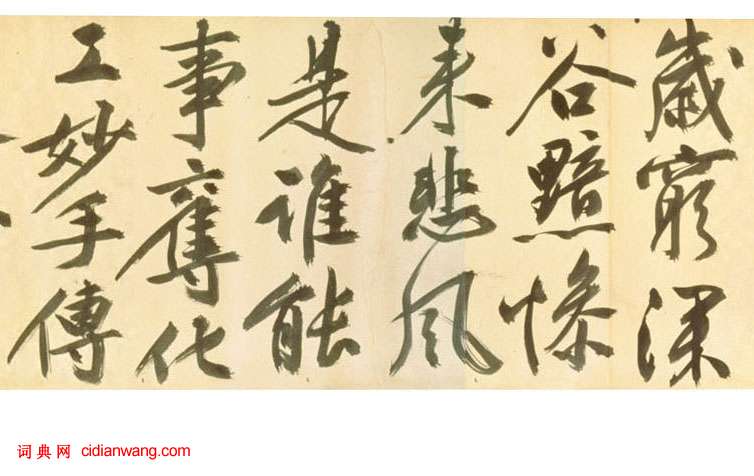 歲窮深
谷黯慘
来悲風
是誰能
事奪化
工妙手傳
词典网 cidianwang.com